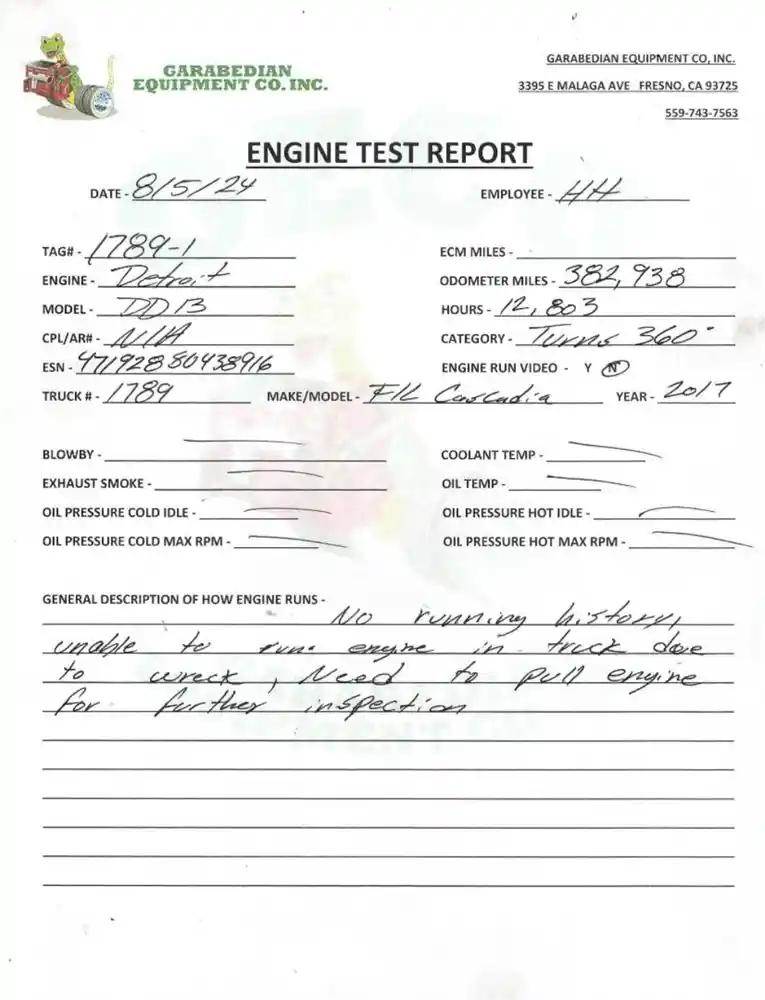 GARABEDIAN
EQUIPMENT CO. INC.
GARABEDIAN EQUIPMENT CO, INC.
3395 E MALAGA AVE FRESNO, CA 93725
559-743-7563
ENGINE TEST REPORT
DATE - 8/5/24 EMPLOYEE - HH
TAG# - 1789-1 ECM MILES -
ENGINE - Detroit ODOMETER MILES - 382,938
MODEL - DD13 HOURS - 12,803
CPL/AR# - N/A CATEGORY - Turns 360°
ESN - 471928S0438916 ENGINE RUN VIDEO - Y N
TRUCK # - 1789 MAKE/MODEL - F/L Cascadia YEAR - 2017
BLOWBY - COOLANT TEMP -
EXHAUST SMOKE - OIL TEMP -
OIL PRESSURE COLD IDLE - OIL PRESSURE HOT IDLE -
OIL PRESSURE COLD MAX RPM - OIL PRESSURE HOT MAX RPM -
GENERAL DESCRIPTION OF HOW ENGINE RUNS -
No running history,
unable to run engine in truck due
to wreck, Need to pull engine
for further inspection